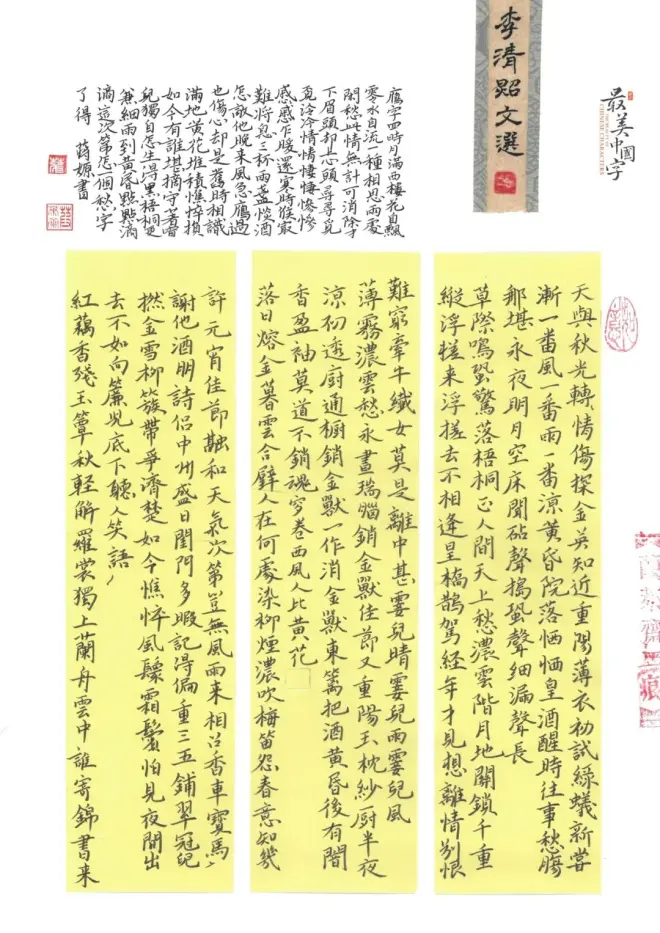 最美中國字
CHINESE CHARACTERS
李清照文選
天與秋光轉情傷探金英知近重陽薄衣初試綠蟻新嘗
漸一番風一番雨一番涼黃昏院落恓恓皇酒醒時往事愁腸
那堪永夜明月空床聞砧聲搗蛩聲細漏聲長
草際鳴蛩驚落梧桐正人間天上愁濃雲階月地關鎖千重
縱浮槎来浮槎去不相逢星橋鵲駕經年才見想離情別恨
難窮牽牛織女莫是離中甚霎兒晴霎兒雨霎兒風
薄霧濃雲愁永晝瑞腦銷金獸佳節又重陽玉枕紗厨半夜
涼初透厨通櫥銷金獸一作消金獸東篱把酒黃昏後有闇
香盈袖莫道不銷魂卷西風人比黃花
落日熔金暮雲合璧人在何處染柳煙濃吹梅笛怨春意知幾
許元宵佳節融和天氣次第豈無風雨来相召香車寶馬
謝他酒朋詩侶中州盛日閨門多暇記得偏重三五鋪翠冠兒
撚金雪柳簇帶爭濟楚如今憔悴風鬟霜鬢怕見夜間出
去不如向簾兒底下聽人笑語
紅藕香殘玉簟秋輕解羅裳獨上蘭舟雲中誰寄錦書来
雁字回時月滿西樓花自飄
零水自流一種相思兩處
閑愁此情無計可消除才
下眉頭却上心頭尋尋覓
覓冷冷情情悽悽慘慘
慼慼乍暖還寒時候最
難將息三杯兩盞淡酒
怎敵他晚来風急雁過
也傷心却是舊時相識
滿地黃花堆積憔悴損
如今有誰堪摘守著窗
兒獨自怎生得黑梧桐更
兼細雨到黃昏點點滴
滴這次第怎個愁字
了得 薛嫄書